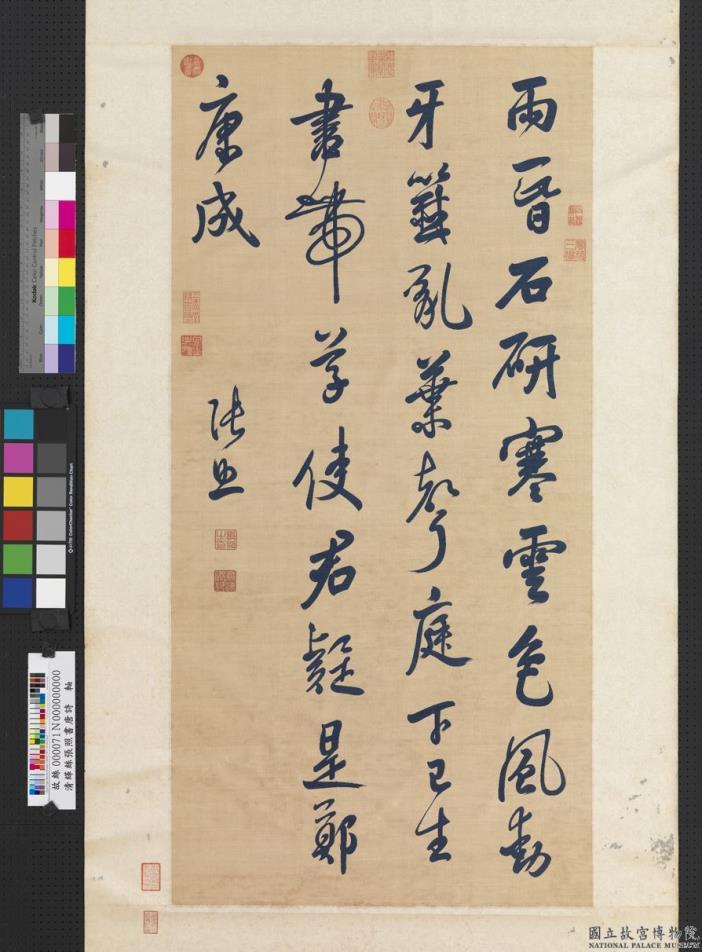 雨昏石研寒雲色風動
牙籤亂葉聲庭下已生
書帶草使君疑是鄭
康成
張照
故絲 000071N000000000
清緙絲張照書唐詩 軸
Kodak Color Control Patches
國立故宮博物院
NATIONAL PALACE MUSEUM